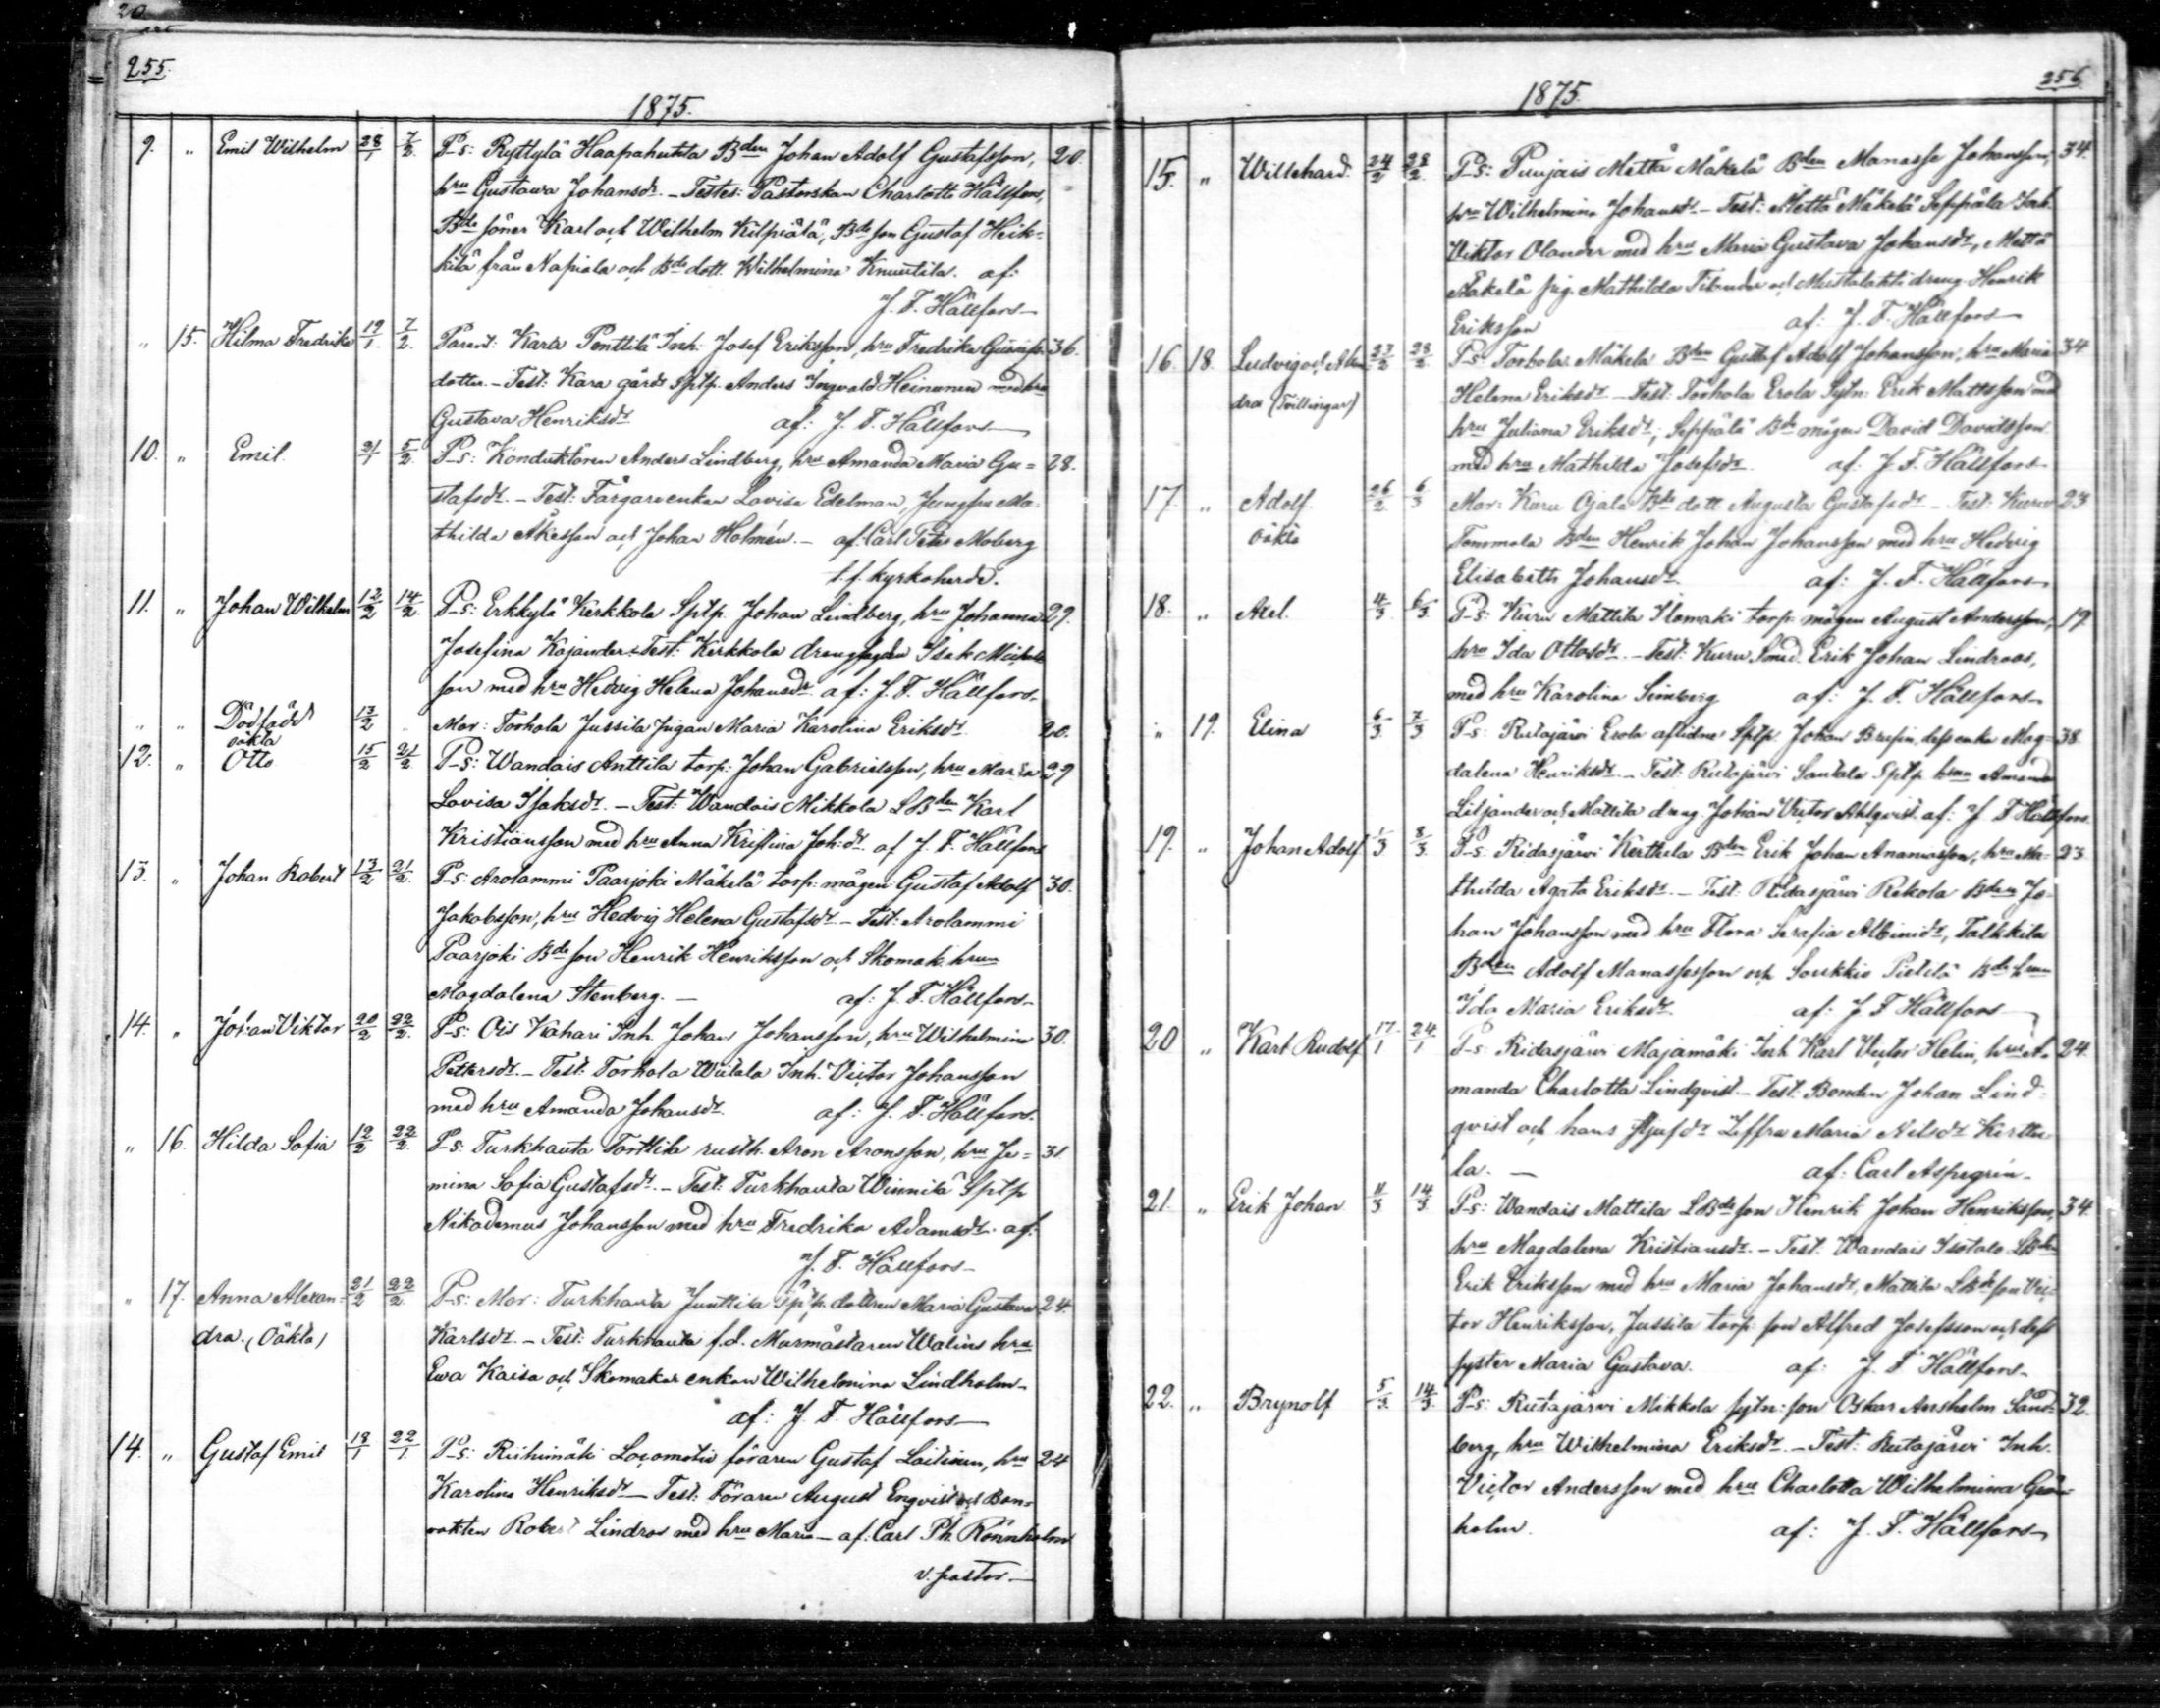 20
255.
1875.
9. " Emil Wilhelm 28/1 7/2. P-s: Ryttylä Haapahuhta Bden Johan Adolf Gustafsson, 20.
hru Gustava Johansdr. - Testes: Pastorskan Charlotte Hällfors,
Bde söner Karl och Wilhelm Kilpiälä, Bde son Gustaf Heik=
kilä från Napiala och Bde dott. Wilhelmina Knuutila. af:
J. F. Hällfors
" 15. Hilma Fredrika 19/1. 7/2. Parent: Kara Penttilä Inh. Josef Eriksson, hru Fredrika 36.
dotter. - Test: Kara gårds Sptp. Anders Ingvald Heinonen med hru
Gustava Henriksdr af: J. F. Hällfors
10. " Emil. 21/1 5/2. P-s: Konduktören Anders Lindberg, hru Amanda Maria Gu= 28.
stafsdr. - Test: Färgareenkan Lovisa Edelman, Jungfru Ma-
thilda Åkesson och Johan Holmén. - af: Carl Peter Moberg
t.f. kyrkoherde.
11. " Johan Wilhelm 12/2 14/2. P-s: Erkkylä Kirkkola Sptp. Johan Lindberg, hru Johanna 29.
Josefina Kajander. Test: Kirkkola drengen Isak Mickels
son med hru Hedvig Helena Johansdr af: J. F. Hällfors.
" " Dödfödd 13/2 Mor: Torhola Jussila pigan Maria Karolina Eriksdr. 20.
oäkta
12. " Otto 15/2 21/2. P-s: Wandais Anttila torp: Johan Gabrielsson, hru Maria 29
Lovisa Isaksdr. - Test: Wandais Mikkola LBden Karl
Kristiansson med hru Anna Kristina Joh:dr. af J. F. Hällfors
13. " Johan Robert 13/2 21/2. P-s: Arolammi Paarjoki Mäkelä torp: mågen Gustaf Adolf 30.
Jakobsson, hru Hedvig Helena Gustafsdr - Test: Arolammi
Paarjoki Bde son Henrik Henriksson och Skomak. hrun
Magdalena Stenberg. - af: J. F. Hällfors.
14. " Johan Viktor 20/2 22/2. P-s: Ois Kahari Inh. Johan Johansson, hru Wilhelmina 30.
Pettersdr. - Test: Torhola Wiitala Inh. Victor Johansson
med hru Amanda Johansdr. af: J. F. Hällfors.
" 16. Hilda Sofia 19/2 22/2. P-s: Turkhauta Torttila rusth. Aron Aronsson, hru Ja= 31
mina Sofia Gustafsdr. - Test: Turkhauta Winnilä Sptp
Nikodemus Johansson med hru Fredrika Adamsdr. af:
J. F. Hällfors-
" 17. Anna Alexan= 21/2 22/2. P-s: Mor: Turkhauta Junttila Sptp. dottren Maria Gustava 24.
dra. (Oäkta) Karlsdr. - Test: Turkhauta f.d. Murmästaren Walins hru
Ewa Kaisa och Skomakar enkan Wilhelmina Lindholm-
af: J. F. Hällfors
14. " Gustaf Emil 18/1 22/1. P-s: Riihimäki Locomotiv föraren Gustaf Laitinen, hru 24
Karolina Henriksdr - Test: Föraren August Enqvist och Ban-
vakten Robert Lindros med hru Maria - af: Carl Ph. Rönnholm
v. pastor -
256
1875.
15. " Willehard. 24/2 28/2. P-s: Punjais Mattå Mäkelä Bden Manasse Johansson, 34.
hru Wilhelmina Johansdr - Test: Mattå Mäkelä Seppälä
Viktor Olander med hru Maria Gustava Johansdr, Mattå
Mäkelä pig. Mathilda och Mustalahti dreng Henrik
Eriksson af: J. F. Hällfors
16. 18. Ludvig och Alexan 27/2 28/2. P-s: Torhola Mäkelä Bden Gustaf Adolf Johansson, hru Maria 34
dra (Tvillingar) Helena Eriksdr - Test: Torhola Erola Sytn: Erik Mattsson med
hru Juliana Eriksdr, Seppälä Bde mågen David Davidsson
med hru Mathilda Josefsdr af: J. F. Hällfors
17. " Adolf. 26/2. 6/3 Mor: Kuru Ojala Bde dott Augusta Gustafsdr - Test: Kuru 23
oäkta Tommola Bden Henrik Johan Johansson med hru Hedvig
Elisabeth Johansdr. af: J. F. Hällfors
18. " Axel. 4/3. 6/3. P-s: Kuru Mattila Ilomäki torp: mågen August Andersson, 19
hru Ida Ottosdr. - Test: Kuru Smed. Erik Johan Lindroos,
med hru Karolina Simberg af: J. F. Hällfors-
" 19. Elina 6/3. 7/3 P-s: Rutajärvi Erola aflidne Sptp. Johan Brusin, dess enka Mag- 38
dalena Henriksdr. - Test: Rutajärvi Santala Sptp. hrun Amanda
Liljander och Mattila dreng Johan Victor Ahlqvist. af: J F Hällfors.
19. " Johan Adolf 1/3 8/3. P-s: Ridasjärvi Kerttula Bden Erik Johan Ananiasson, hru Ma- 23
thilda Agata Eriksdr. - Test: Ridasjärvi Rekola Bden Jo-
han Johansson med hru Flora Serafia Albinidr, Talkkila
Bden Adolf Manassesson och Soukkio Pietilä Bde hrun
Ida Maria Eriksdr. af: J F Hällfors
20 " Karl Rudolf 17/1 24/1 P-s: Ridasjärvi Majamäki Inh. Karl Victor Helin, hru A- 24.
manda Charlotta Lindqvist. - Test: Bonden Johan Lind-
qvist och hans Jfru Maria Nilsdr Kerttu-
la. - af: Carl Aspegrén-
21. " Erik Johan 11/3 14/3. P-s: Wandais Mattila LBde son Henrik Johan Henriksson, 34.
hru Magdalena Kristiansdr. - Test: Wandais Isotalo LBden
Erik Eriksson med hru Maria Johansdr, Mattila LBde son Vic-
tor Henriksson, Jussila torp: son Alfred Josefsson och dess
syster Maria Gustava. af: J. F Hällfors-
22. " Brynolf 5/3. 14/3. P-s: Rutajärvi Mikkola sytn: son Oskar Anshelm Sand- 32.
berg, hru Wilhelmina Eriksdr. - Test: Rutajärvi Inh.
Victor Andersson med hru Charlotta Wilhelmina Grön-
holm. af: J. F. Hällfors-